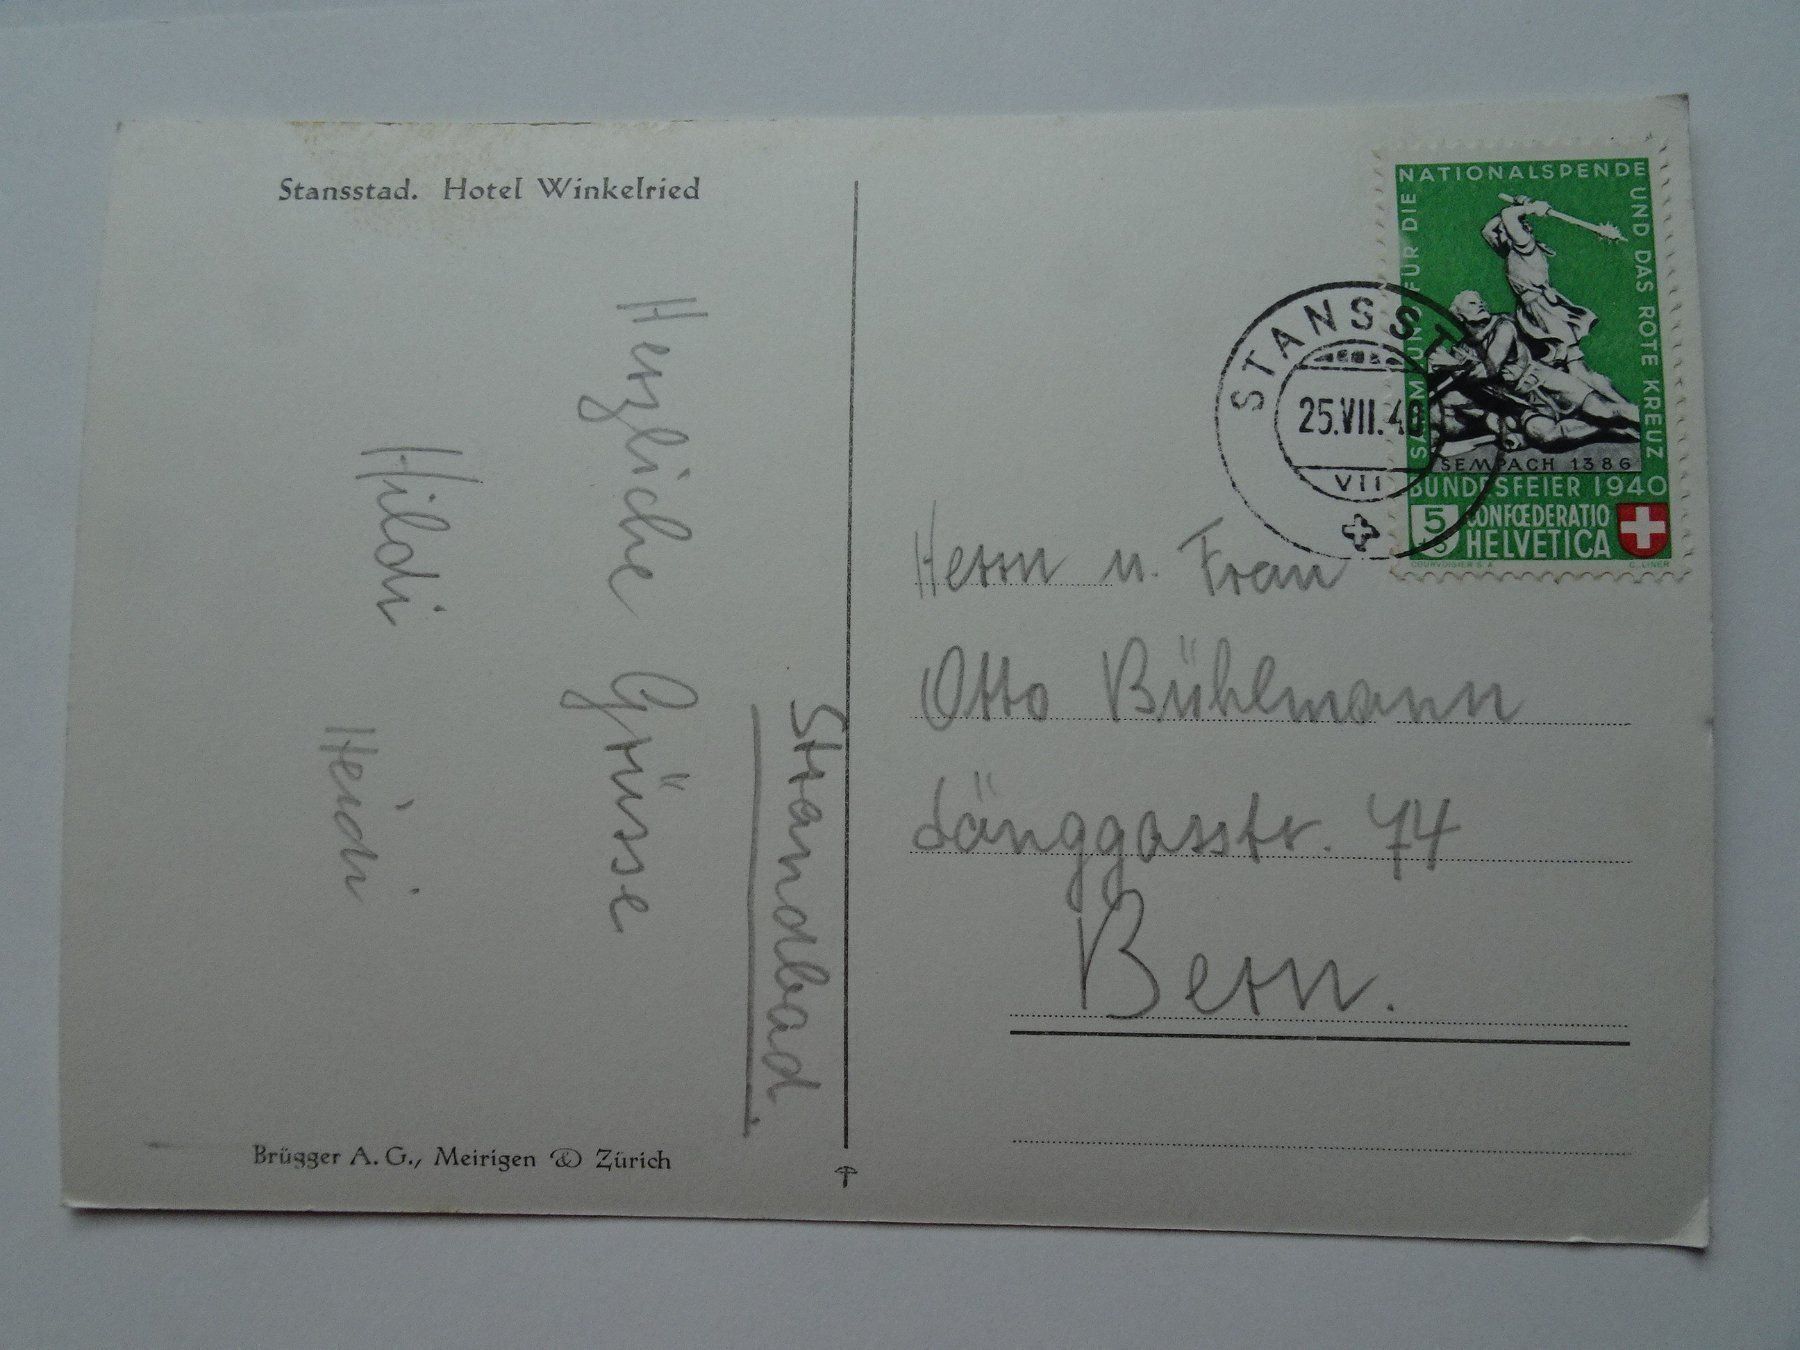 Stansstad. Hotel Winkelried
Herzliche Grüsse
Hildi Heidi
Strandbad.
Brügger A. G., Meirigen & Zürich
SAMMLUNG FÜR DIE NATIONALSPENDE UND DAS ROTE KREUZ
SEMPACH 1386
BUNDESFEIER 1940
5
+5
CONFŒDERATIO
HELVETICA
COURVOISIER S.A.
C. LINER
STANSST
25.VII.40
VII
Herrn u. Frau
Otto Bühlmann
Länggasstr. 74
Bern.